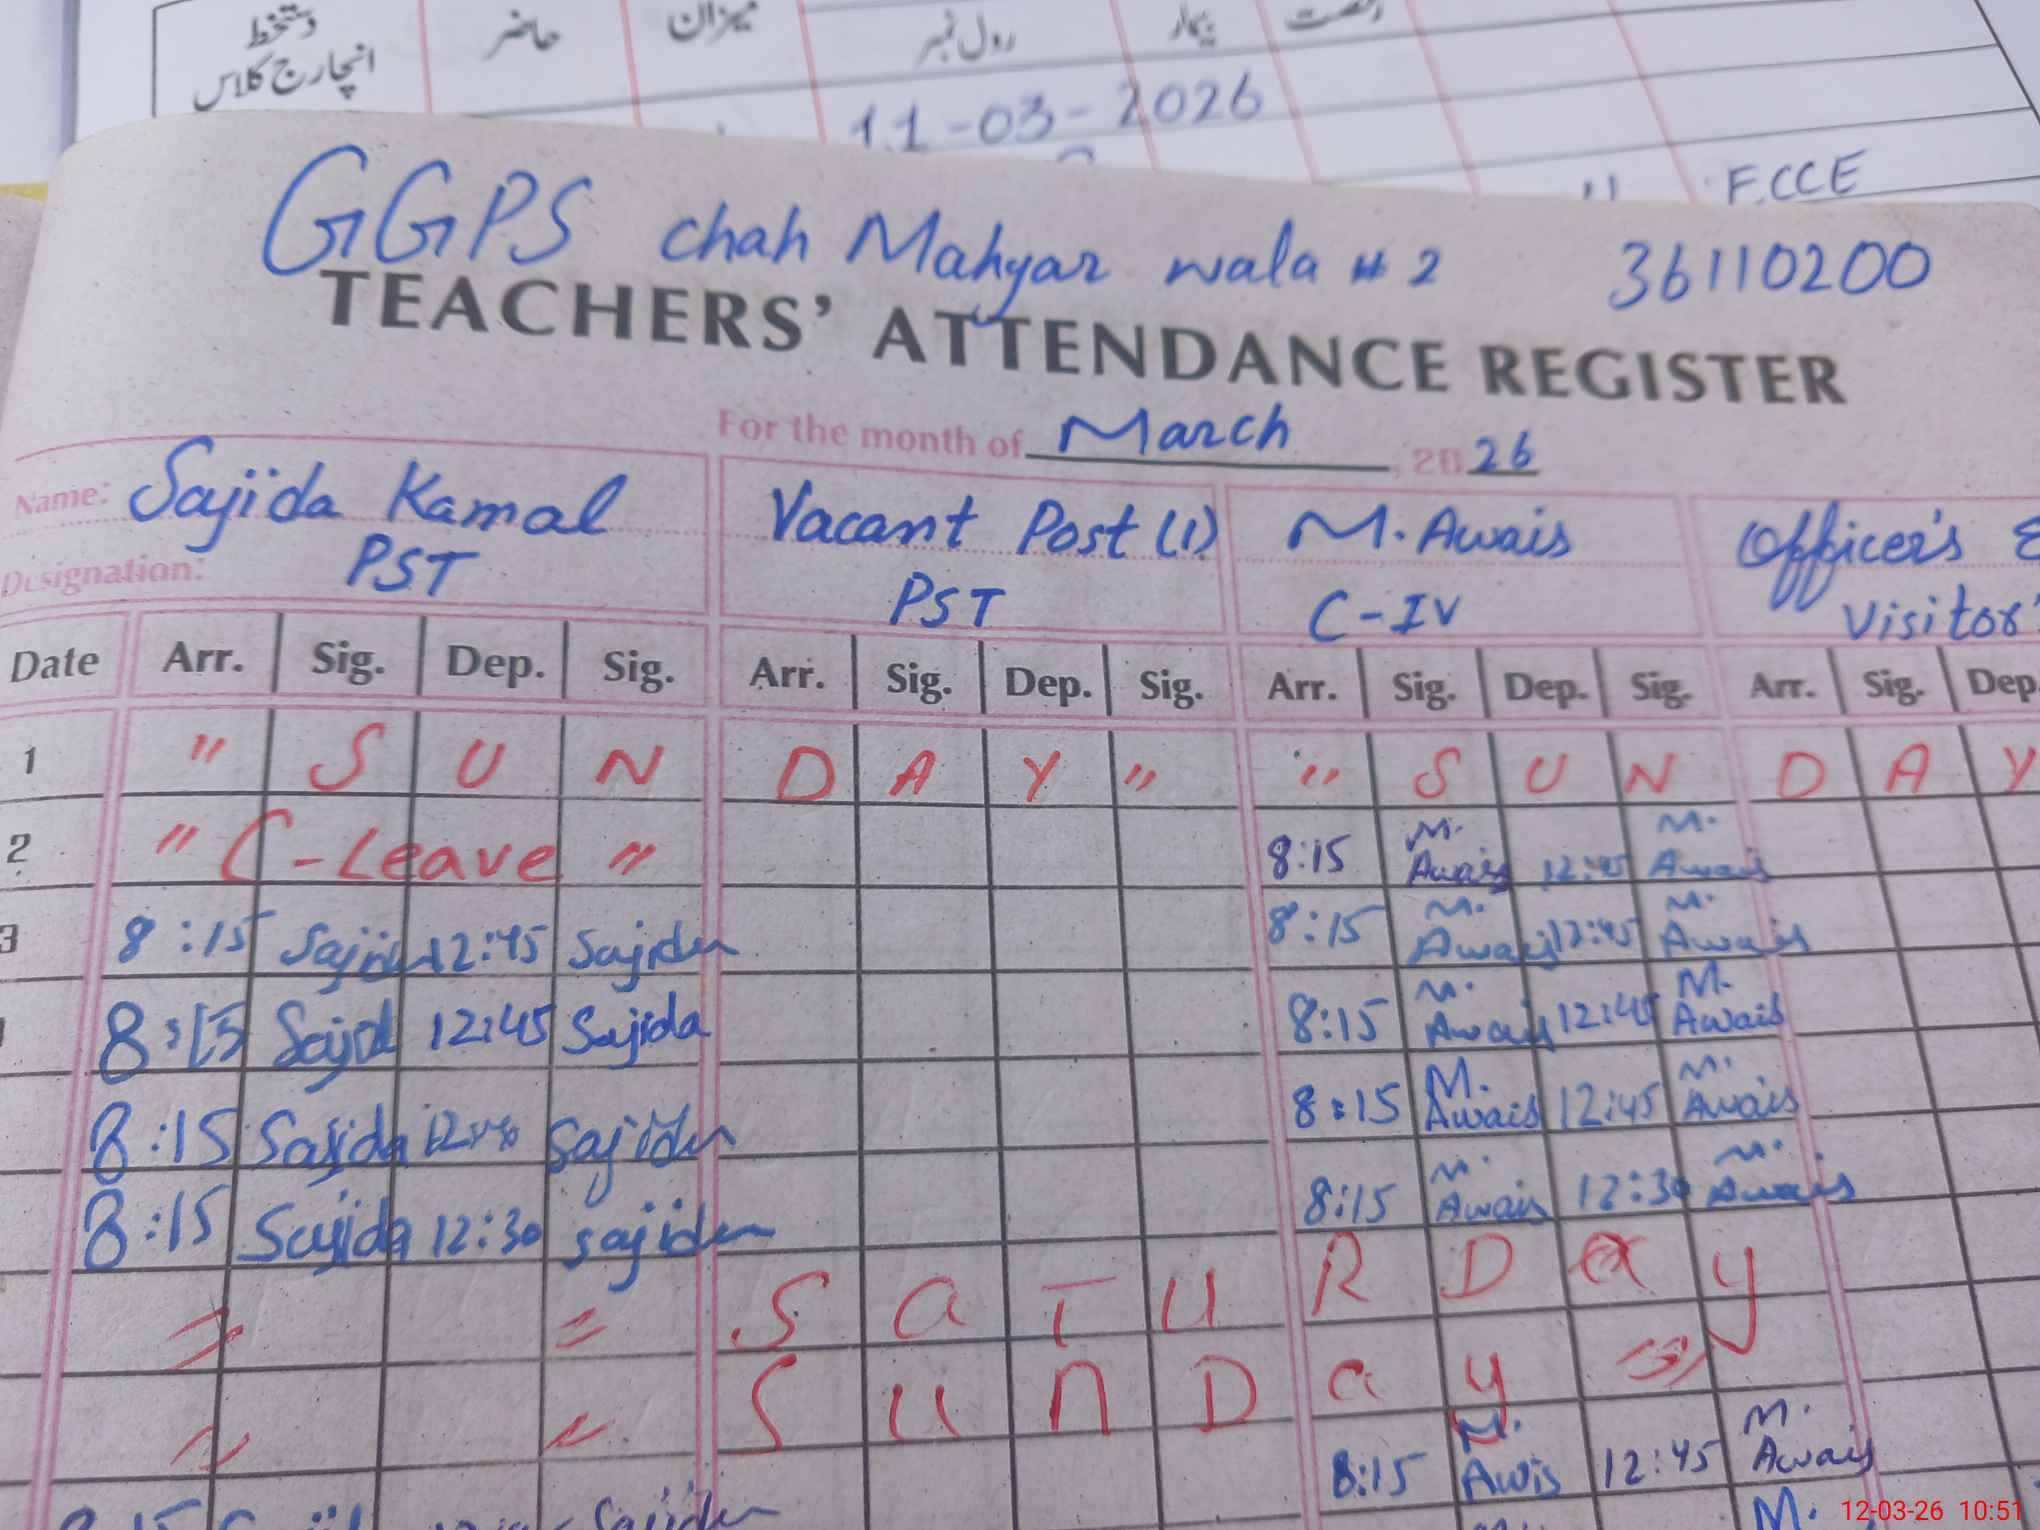 دستخط انچارج کلاس حاضر میزان رول نمبر بیمار رخصت
11-03-2026
11 F.CCE
GGPS chah Mahyar wala # 2 36110200
TEACHERS' ATTENDANCE REGISTER
For the month of March, 2026
Name: Sajida Kamal Vacant Post (1) M. Awais Officer's &
Designation: PST PST C-IV Visitor
Date Arr. Sig. Dep. Sig. Arr. Sig. Dep. Sig. Arr. Sig. Dep. Sig. Arr. Sig. Dep.
1 " S U N D A Y " " S U N D A Y
2 " C-Leave " 8:15 M. Awais 12:45 M. Awais
3 8:15 Sajida 12:45 Sajida 8:15 M. Awais 12:45 M. Awais
8:15 Sajid 12:45 Sajida 8:15 M. Awais 12:45 M. Awais
8:15 Sajida Sajida 8:15 M. Awais 12:45 M. Awais
8:15 Sajida 12:30 Sajida 8:15 M. Awais 12:30 M. Awais
" " S a T U R D a y
" " S u n D a y "
8:15 M. Awis 12:45 M. Awais
Sajida M.
12-03-26 10:51